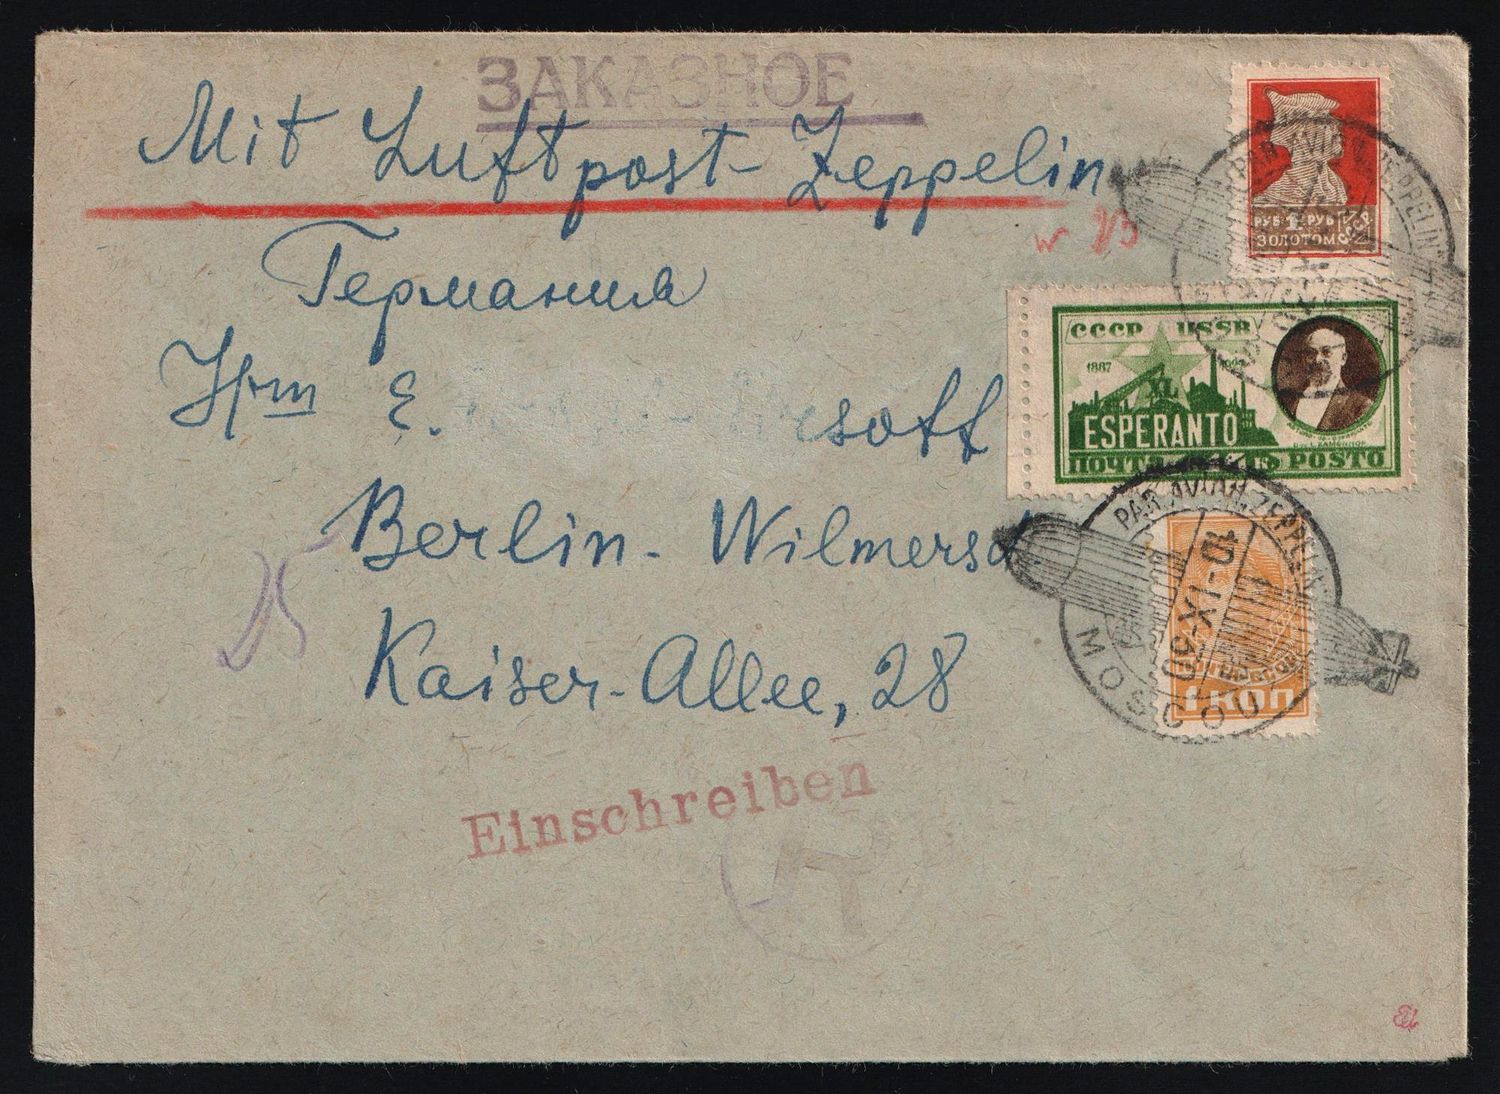 ЗАКАЗНОЕ
Mit Luftpost-Zeppelin
Германия
E. soff
Berlin-Wilmersd
Kaiser-Allee, 28
Einschreiben
R
РУБ 1 РУБ
ЗОЛОТОМ
СССР
PAR AVION ZEPPELIN
СССР USSR
1887
XL
ESPERANTO
ПОЧТА POSTO
PAR AVION ZEPPELIN
10-IX-30
MOSCOU
1 КОП